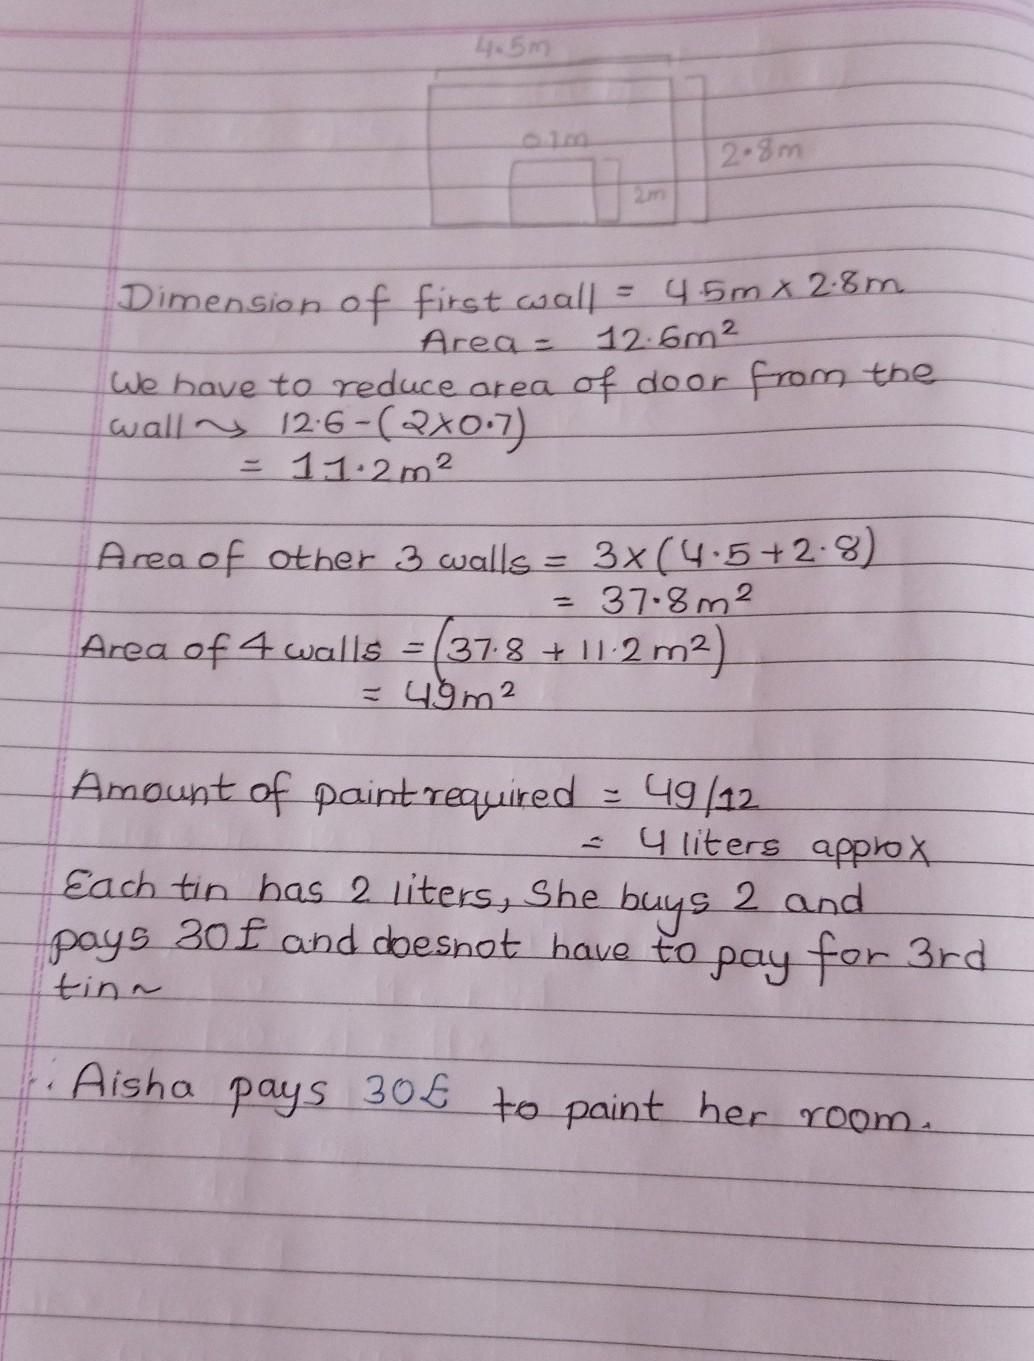 4.5m
0.7m
2.8m
2m
Dimension of first wall = 4.5m x 2.8m
Area = 12.6m²
We have to reduce area of door from the
wall ~> 12.6-(2x0.7)
= 11.2m²
Area of other 3 walls = 3x(4.5+2.8)
= 37.8m²
Area of 4 walls = (37.8 + 11.2m²)
= 49m²
Amount of paint required = 49/12
= 4 liters approx
Each tin has 2 liters, She buys 2 and
pays 30£ and doesnot have to pay for 3rd
tin~
∴ Aisha pays 30£ to paint her room.